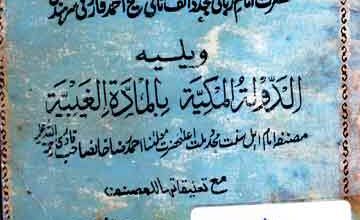 حضرت امام ربانی مجدد الف ثانی شیخ احمد فاروقی سرہندی
ویلیه
الدولة المكية بالمادة الغيبية
مصنفہ امام اہل سنت مجدد ملت اعلیٰحضرت مولٰنا احمد رضا خانصاحب قادری
مع تعلیقاتہا للمصنف